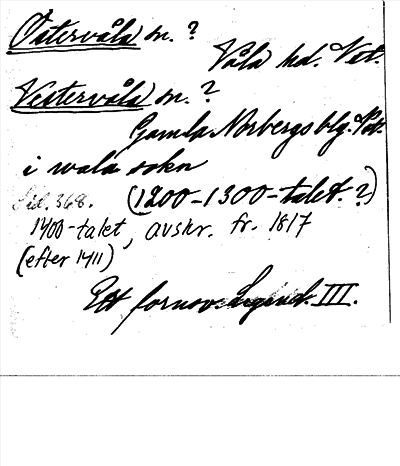 Östervåla sn. ?
Våla hd. Vstm.
Vestervåla sn. ?
Gamla Norbergs blg. Vstm.
i wala sokn
Sid. 368. (1200-1300-talet. ?)
1400-talet, avskr. fr. 1817
(efter 1411)
Ett fornsv. Legend. III.